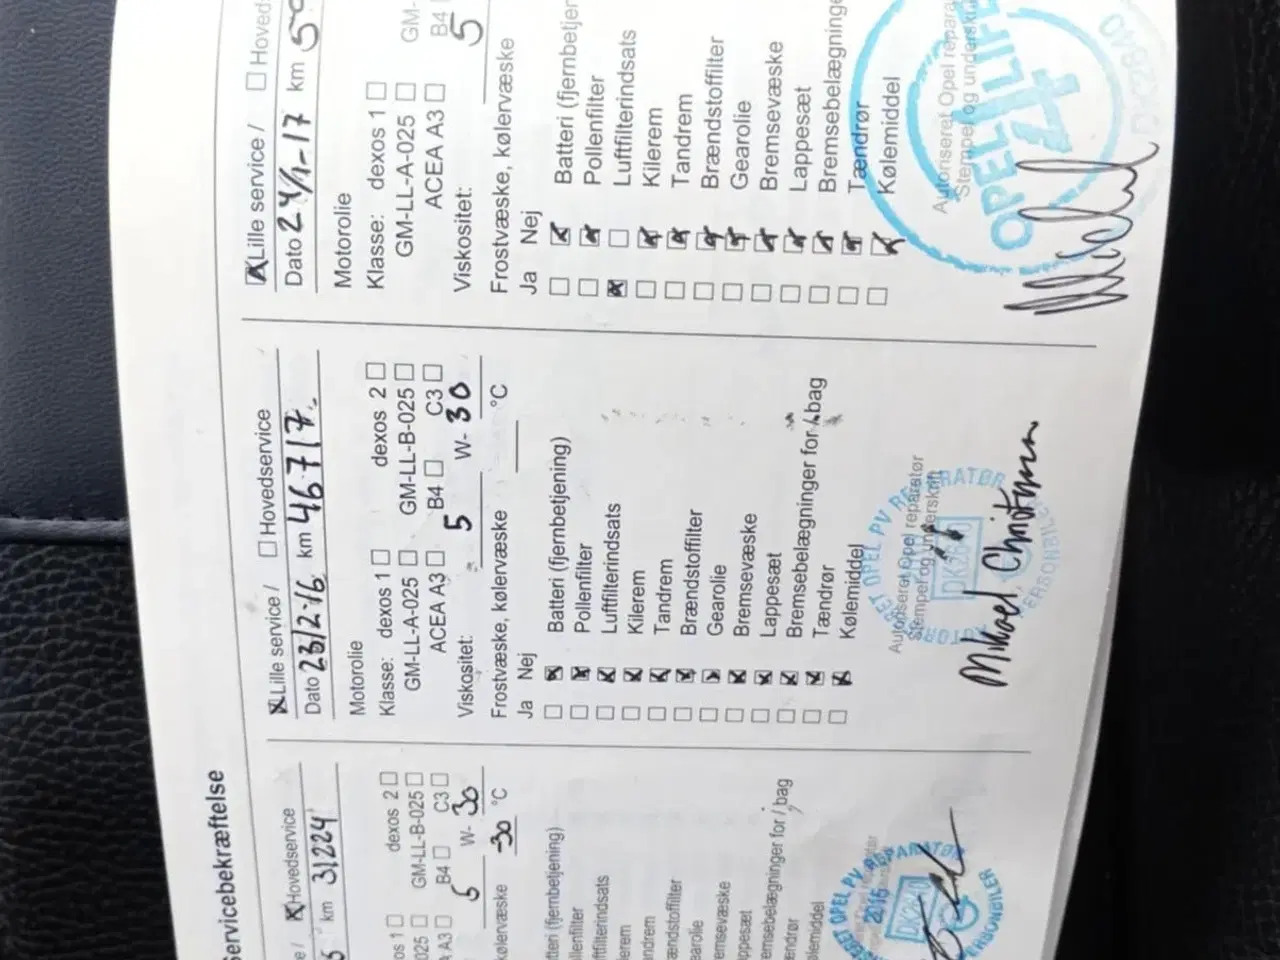 Servicebekræftelse
e / ☒ Hovedservice
km 31224
os 1 ☐ dexos 2 ☐
025 ☐ GM-LL-B-025 ☐
A3 ☐ B4 ☐ C3 ☐
5 W- 30
kølervæske -30 °C
tteri (fjernbetjening)
llenfilter
ftfilterindsats
lerem
ndrem
ændstoffilter
earolie
emsevæske
ppesæt
emsebelægninger for / bag
ændrør
ølemiddel
☒ Lille service / ☐ Hovedservice
Dato 23/2-16 km 46717.
Motorolie
Klasse: dexos 1 ☐ dexos 2 ☐
GM-LL-A-025 ☐ GM-LL-B-025 ☐
ACEA A3 ☐ B4 ☐ C3 ☐
Viskositet: 5 W- 30
Frostvæske, kølervæske °C
Ja Nej
☐ ☒ Batteri (fjernbetjening)
☐ ☒ Pollenfilter
☐ ☒ Luftfilterindsats
☐ ☒ Kilerem
☐ ☒ Tandrem
☐ ☒ Brændstoffilter
☐ ☒ Gearolie
☐ ☒ Bremsevæske
☐ ☒ Lappesæt
☐ ☒ Bremsebelægninger for / bag
☐ ☒ Tændrør
☐ ☒ Kølemiddel
Autoriseret Opel reparatør
Stempel og underskrift
☒ Lille service / ☐ Hoveds
Dato 24/1-17 km
Motorolie
Klasse: dexos 1 ☐
GM-LL-A-025 ☐ GM-
ACEA A3 ☐ B4
Viskositet: 5
Frostvæske, kølervæske
Ja Nej
☐ ☒ Batteri (fjernbetjen
☐ ☒ Pollenfilter
☒ ☐ Luftfilterindsats
☐ ☒ Kilerem
☐ ☒ Tandrem
☐ ☒ Brændstoffilter
☐ ☒ Gearolie
☐ ☒ Bremsevæske
☐ ☒ Lappesæt
☐ ☒ Bremsebelægninge
☐ ☒ Tændrør
☐ ☒ Kølemiddel
Autoriseret Opel repara
Stempel og undersk
OPEL 4 LIFE